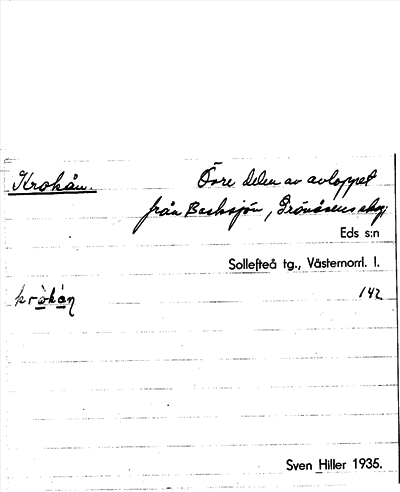 Krokån. Övre delen av avloppet
från Backsjön, Grönåsens skog
Eds s:n
Sollefteå tg., Västernorrl. l.
kròkàn 142
Sven Hiller 1935.